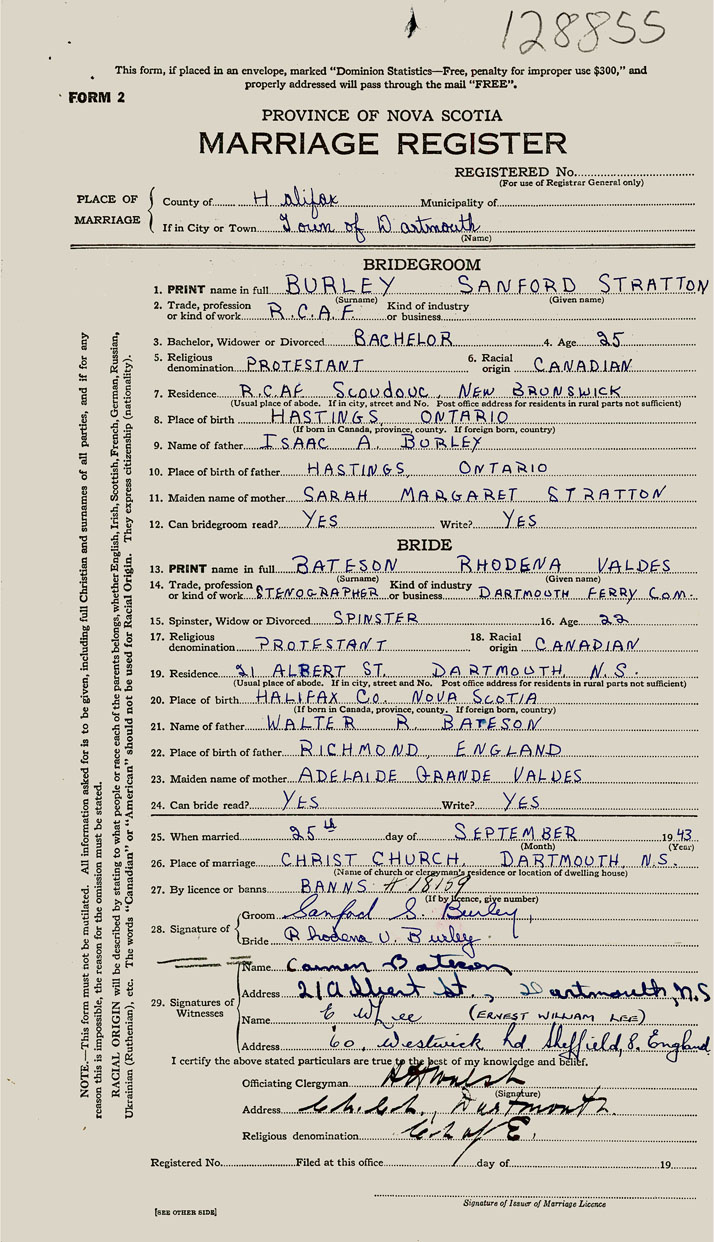 128855
This form, if placed in an envelope, marked "Dominion Statistics—Free, penalty for improper use $300," and
properly addressed will pass through the mail "FREE".
FORM 2
PROVINCE OF NOVA SCOTIA
MARRIAGE REGISTER
REGISTERED No.
(For use of Registrar General only)
PLACE OF MARRIAGE
County of Halifax Municipality of
If in City or Town Town of Dartmouth
(Name)
BRIDEGROOM
1. PRINT name in full BURLEY SANFORD STRATTON
(Surname) (Given name)
2. Trade, profession or kind of work R.C.A.F. Kind of industry or business
3. Bachelor, Widower or Divorced BACHELOR 4. Age 25
5. Religious denomination PROTESTANT 6. Racial origin CANADIAN
7. Residence R.C.AF SCOUDOUC, NEW BRUNSWICK
(Usual place of abode. If in city, street and No. Post office address for residents in rural parts not sufficient)
8. Place of birth HASTINGS, ONTARIO
(If born in Canada, province, county. If foreign born, country)
9. Name of father ISAAC A. BURLEY
10. Place of birth of father HASTINGS, ONTARIO
11. Maiden name of mother SARAH MARGARET STRATTON
12. Can bridegroom read? YES Write? YES
BRIDE
13. PRINT name in full BATESON RHODENA VALDES
(Surname) (Given name)
14. Trade, profession or kind of work STENOGRAPHER Kind of industry or business DARTMOUTH FERRY COM.
15. Spinster, Widow or Divorced SPINSTER 16. Age 22
17. Religious denomination PROTESTANT 18. Racial origin CANADIAN
19. Residence 21 ALBERT ST. DARTMOUTH, N.S.
(Usual place of abode. If in city, street and No. Post office address for residents in rural parts not sufficient)
20. Place of birth HALIFAX CO. NOVA SCOTIA
(If born in Canada, province, county. If foreign born, country)
21. Name of father WALTER R. BATESON
22. Place of birth of father RICHMOND, ENGLAND
23. Maiden name of mother ADELAIDE GRANDE VALDES
24. Can bride read? YES Write? YES
25. When married 25th day of SEPTEMBER 1943
(Month) (Year)
26. Place of marriage CHRIST CHURCH, DARTMOUTH, N.S.
(Name of church or clergyman's residence or location of dwelling house)
27. By licence or banns BANNS # 18159
(If by licence, give number)
28. Signature of
Groom Sanford S. Burley
Bride Rhodena V. Burley
29. Signatures of Witnesses
Name Carmen Bateson
Address 21 Albert St., Dartmouth, N.S
Name E W Lee (ERNEST WILLIAM LEE)
Address 60, Westwick Rd Sheffield, 8. England
I certify the above stated particulars are true to the best of my knowledge and belief.
Officiating Clergyman Walsh
(Signature)
Address Ch. Ch., Dartmouth.
Religious denomination Ch of E.
Registered No. Filed at this office day of 19
Signature of Issuer of Marriage Licence
[SEE OTHER SIDE]
NOTE.—This form must not be mutilated. All information asked for is to be given, including full Christian and surnames of all parties, and if for any
reason this is impossible, the reason for the omission must be stated.
RACIAL ORIGIN will be described by stating to what people or race each of the parents belongs, whether English, Irish, Scottish, French, German, Russian,
Ukrainian (Ruthenian), etc. The words "Canadian" or "American" should not be used for Racial Origin. They express citizenship (nationality).